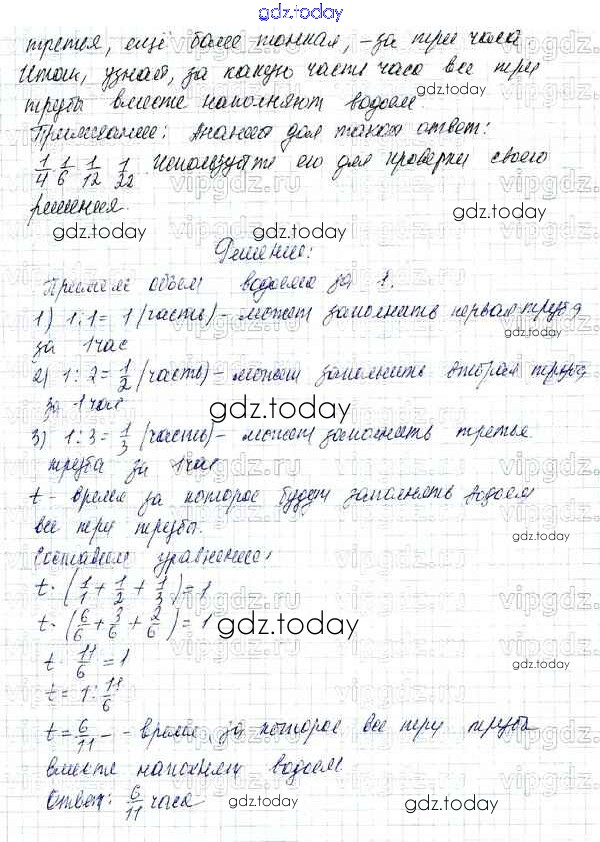 gdz.today
третья, ещё более тонкая, - за три часа
Итак, узнай, за какую часть часа все три
трубы вместе наполняют водоем.
Примечание: Анания дал такой ответ:
1/4 1/6 1/12 1/22. Используйте его для проверки своего
решения.
gdz.today gdz.today
Решение:
Примем объем водоема за 1.
1) 1:1= 1 (часть) - может заполнить первая труба
за 1 час
2) 1:2= 1/2 (часть) - может заполнить вторая труба
за 1 час
gdz.today
3) 1:3= 1/3 (часть) - может заполнить третья
труба за 1 час
t - время за которое будут заполнять водоем
все три трубы.
Составим уравнение:
t·(1/1+1/2+1/3)=1
t·(6/6+3/6+2/6)=1
gdz.today
t·11/6=1
t=1:11/6
t=6/11 - - время за которое все три трубы
вместе наполнят водоем
Ответ: 6/11 часа
gdz.today gdz.today
vipgdz.ru